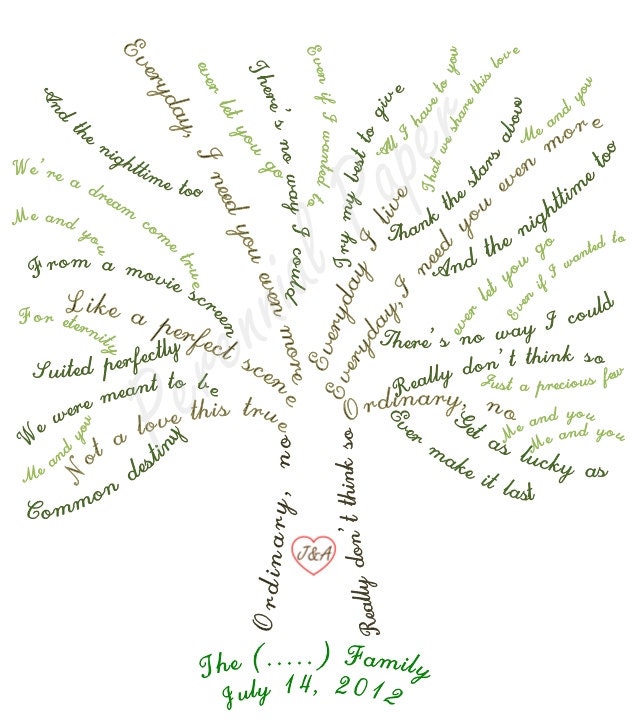 Everyday, I need you even more
ever let you go
There's no way I could
Even if I wanted to
Try my best to give
All I have to you
That we share this love
Me and you
And the nighttime too
Thank the stars above
Everyday I live
Everyday, I need you even more
And the nighttime too
We're a dream come true
Me and you
From a movie screen
ever let you go
Even if I wanted to
For eternity
Like a perfect scene
There's no way I could
Suited perfectly
Really don't think so
Just a precious few
We were meant to be
Ordinary, no
Me and you
Me and you
Not a love this true
Get as lucky as
Me and you
Common destiny
Ever make it last
Ordinary, no
Really don't think so
J&A
Perennial Paper
The (.....) Family
July 14, 2012